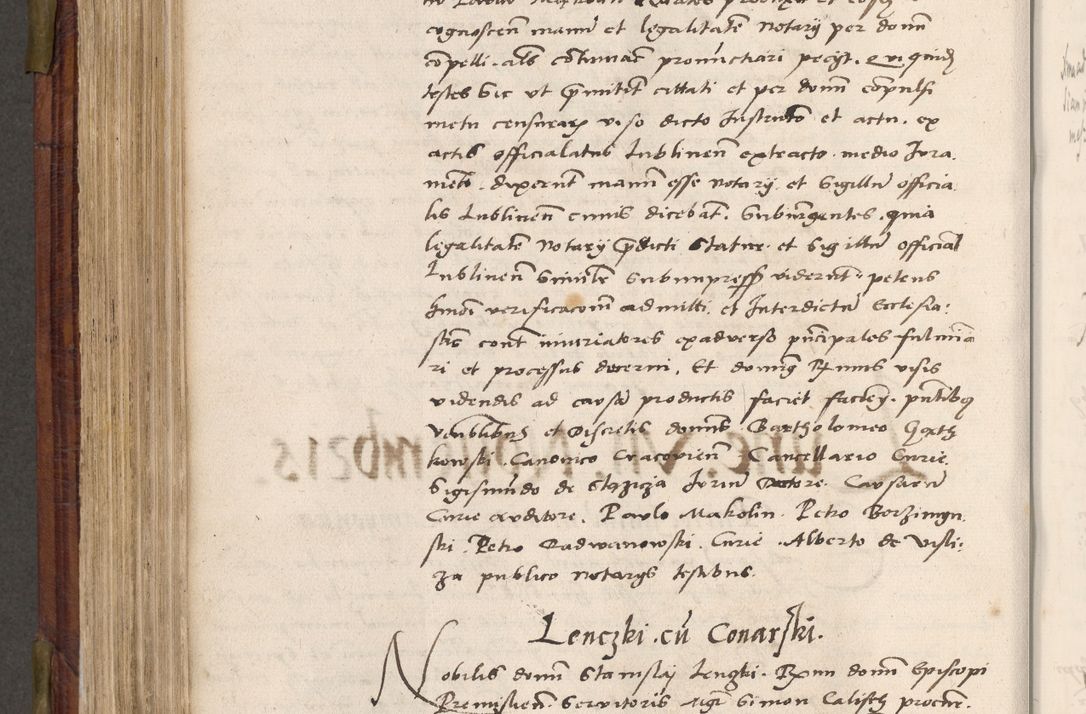 cognoscen manu et legalitate Notarÿ per domi
compelli. als contumac pronunctiari peciÿt. Qui quidem
testes sic ut premittit cittati et per dominum compulsi
metu censurarum viso dicto Instrumento et actu. ex
actis officialatus Lublinen extracto. medio Jura
mento. dixerunt manum esse notarÿ et Sigillum officia
lis Lublinen cuius dicebant. Subiungentes. quia
legalitate Notarÿ predicti statur. et Sigillum official
Lublinen simile subimpressum viderunt. petens
hmoi verificacionem admitti. et Interdictum Ecclesia
sticum contra iniuriatores exadverso principales fulmina
ri et processus decerni. Et dominus R. visis
videndis ad causam productis faciet faciendum. pntibus
Venblibus et Discretis dominis Bartholomeo
kowski Canonico Cracovien Cancellario Curie.
Sigismundo de Stezicza Jurium Doctore Causarum
Curie Auditore. Paulo Makolin. Petro Borzimyn
ski. Petro Radwanowski. Curie. Alberto de Visli:
za publico notarys testibus.
Lenczki. cu Conarski.
Nobilis domini Stanislaÿ Lengki. Rxmi domini Episcopi
Premislien. Servitoris Mgr Simon Calisch procur.